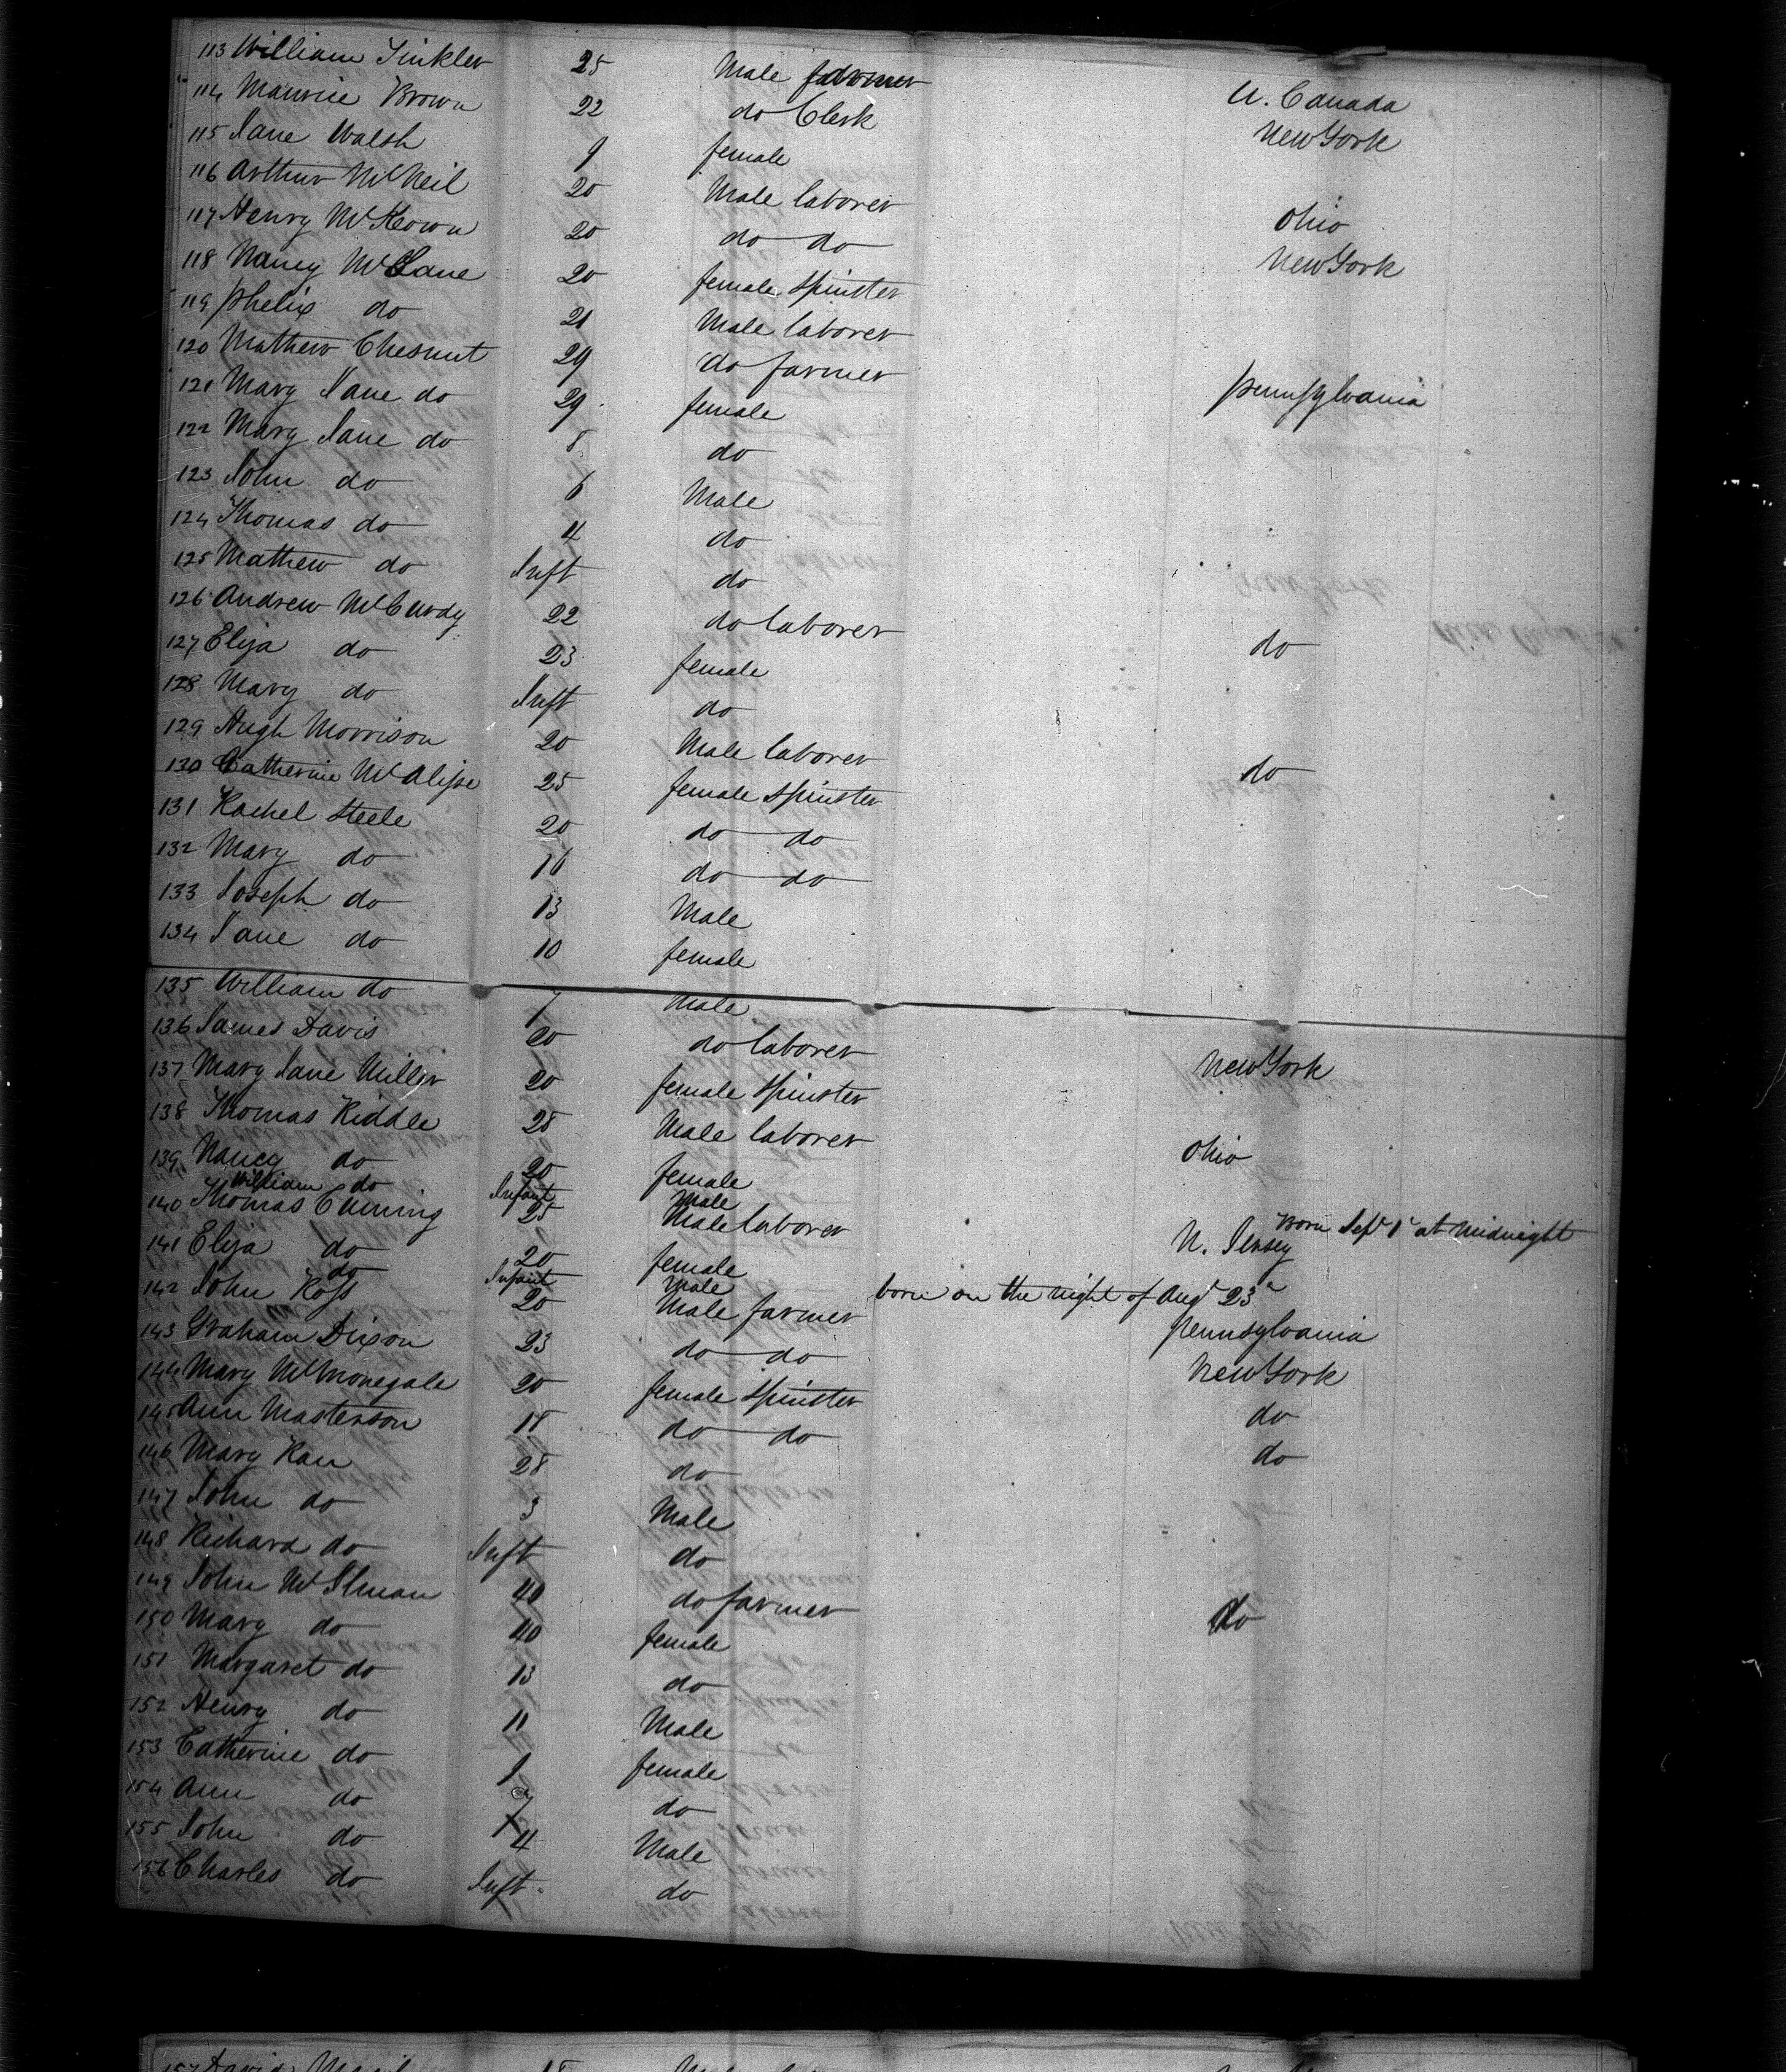 113 William Tinkler 25 Male farmer U. Canada
114 Maurice Brown 22 do Clerk New York
115 Jane Walsh 9 female
116 Arthur McNeil 20 Male laborer Ohio
117 Henry McKeown 20 do do New York
118 Nancy McLane 20 female Spinster
119 Phelix do 21 Male laborer
120 Mathew Chesnut 29 do farmer Pennsylvania
121 Mary Jane do 29 female
122 Mary Jane do 8 do
123 John do 6 Male
124 Thomas do 4 do
125 Mathew do Inft do
126 Andrew McCurdy 22 do laborer do
127 Eliza do 23 female
128 Mary do Inft do
129 Hugh Morrison 20 Male laborer do
130 Catherine 25 female Spinster
131 Rachel Steele 20 do do
132 Mary do 16 do do
133 Joseph do 13 Male
134 Jane do 10 female
135 William do 7 Male
136 James Davis 20 do laborer New York
137 Mary Jane Miller 20 female Spinster
138 Thomas Riddle 28 Male laborer Ohio
139 Nancy do 20 female
William do Infant Male Born Sept 1st at Midnight
140 Thomas Cuming 25 Male laborer N. Jersey
141 Eliza do 20 female
do Infant Male born on the night of Augt 23d
142 John Ross 20 Male farmer Pennsylvania
143 Graham Dixon 23 do do New York
144 Mary McMonegale 20 female Spinster do
145 Ann Masterson 18 do do do
146 Mary Kan 28 do
147 John do 3 Male
148 Richard do Inft do
149 John 40 do farmer do
150 Mary do 40 female
151 Margaret do 13 do
152 Henry do 11 Male
153 Catherine do 9 female
154 Ann do 7 do
155 John do 4 Male
156 Charles do Inft do